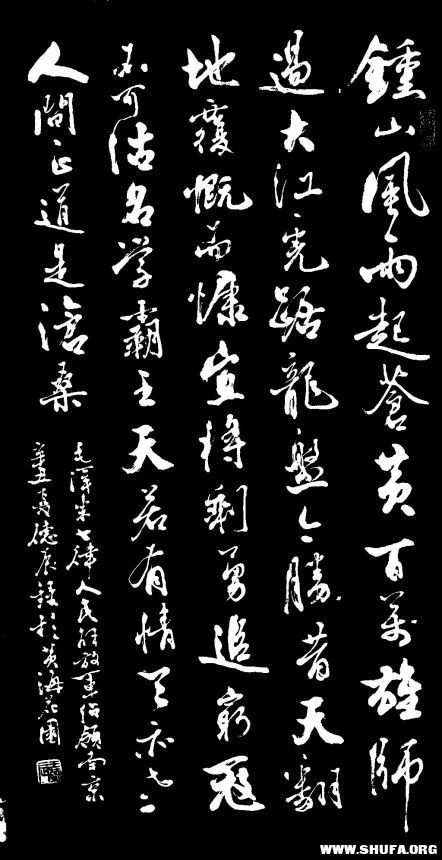 鍾山風雨起蒼黃百萬雄師
過大江虎踞龍盤今勝昔天翻
地覆慨而慷宜將剩勇追窮寇
不可沽名学霸王天若有情天亦老
人間正道是滄桑
毛澤東七律人民解放軍佔領南京
辛丑春德辰錄於黃海花園
WWW.SHUFA.ORG